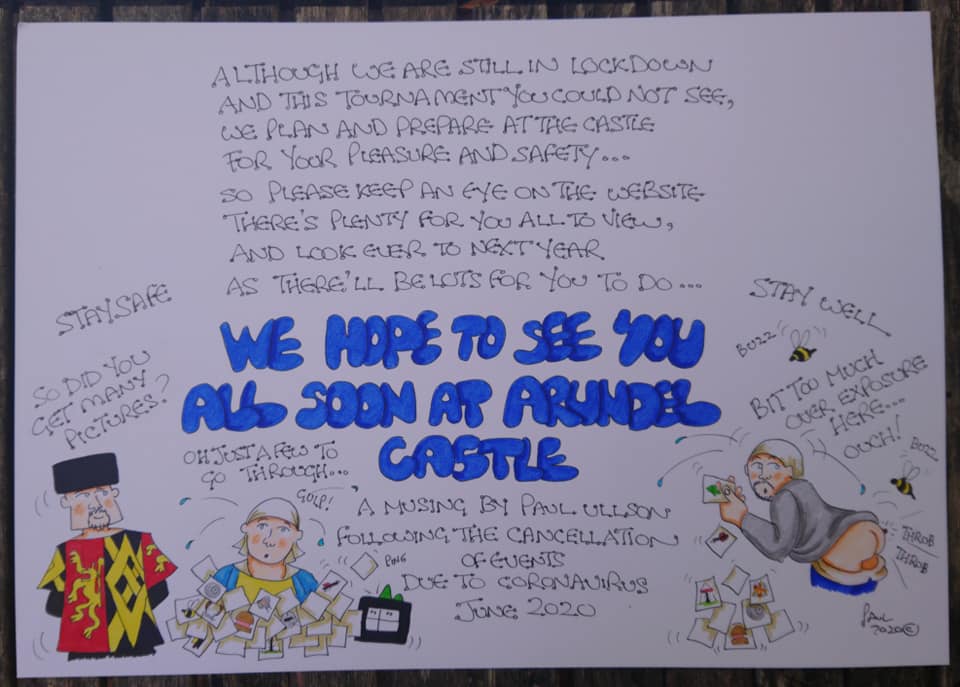 ALTHOUGH WE ARE STILL IN LOCKDOWN
AND THIS TOURNAMENT YOU COULD NOT SEE,
WE PLAN AND PREPARE AT THE CASTLE
FOR YOUR PLEASURE AND SAFETY...
SO PLEASE KEEP AN EYE ON THE WEBSITE
THERE'S PLENTY FOR YOU ALL TO VIEW,
AND LOOK EVER TO NEXT YEAR
AS THERE'LL BE LOTS FOR YOU TO DO...
STAY SAFE
STAY WELL
WE HOPE TO SEE YOU
ALL SOON AT ARUNDEL
CASTLE
SO DID YOU
GET MANY
PICTURES?
OH JUST A FEW TO
GO THROUGH...
GOLP!
PING
A MUSING BY PAUL ULLSON
FOLLOWING THE CANCELLATION
OF EVENTS
DUE TO CORONAVIRUS
JUNE 2020
BUZZ
BIT TOO MUCH
OVER EXPOSURE
HERE...
OUCH!
BUZZ
THROB
THROB
PAUL
2020©